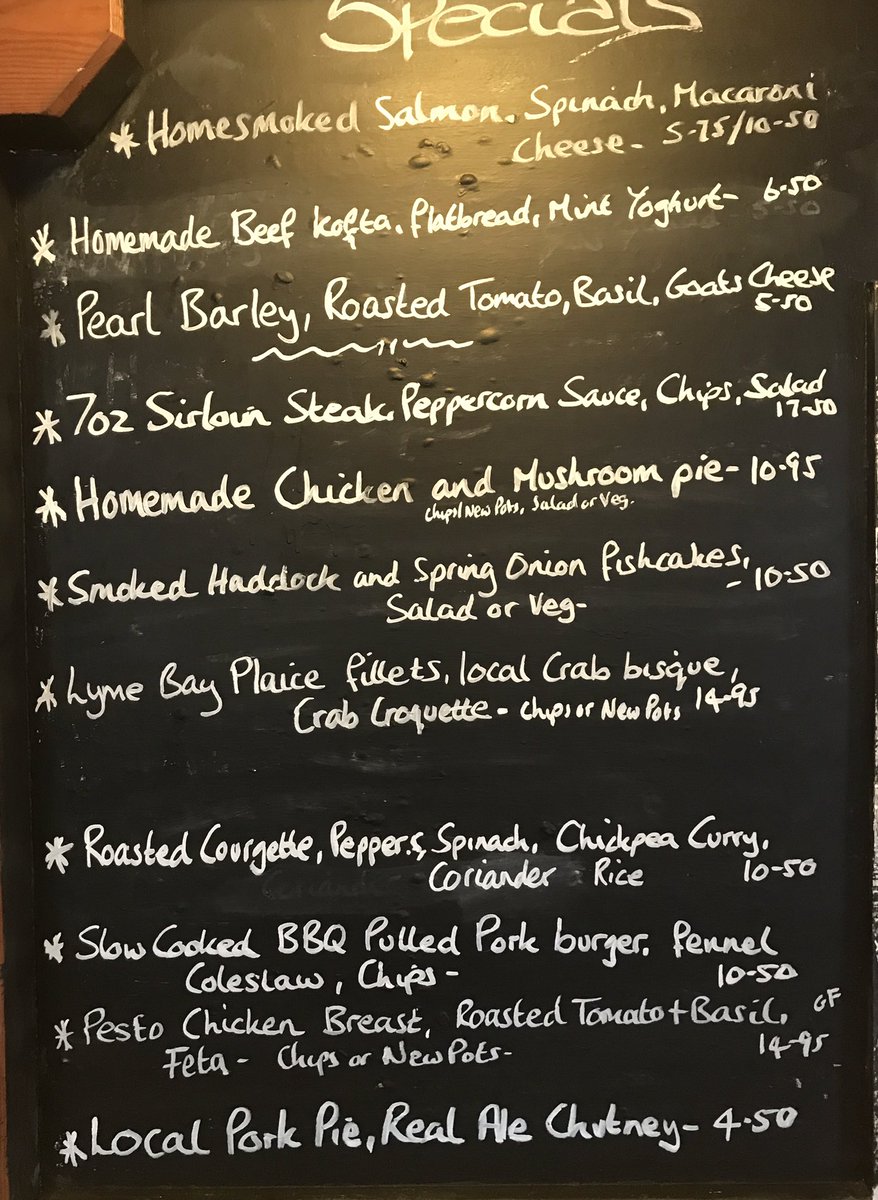 Specials
* Homesmoked Salmon, Spinach, Macaroni
Cheese - 5-75/10-50
* Homemade Beef Kofta, flatbread, Mint Yoghurt - 6-50
* Pearl Barley, Roasted Tomato, Basil, Goats Cheese
5-50
* 7oz Sirloin Steak, Peppercorn Sauce, Chips, Salad
17-50
* Homemade Chicken and Mushroom pie - 10-95
Chips/New Pots, Salad or Veg.
* Smoked Haddock and Spring Onion fishcakes,
Salad or Veg - - 10-50
* Lyme Bay Plaice fillets, local Crab bisque,
Crab Croquette - Chips or New Pots 14-95
* Roasted Courgette, Peppers, Spinach, Chickpea Curry,
Coriander Rice 10-50
* Slow Cooked BBQ Pulled Pork burger, fennel
Coleslaw, Chips - 10-50
* Pesto Chicken Breast, Roasted Tomato + Basil, GF
Feta - Chips or New Pots - 14-95
* Local Pork Pie, Real Ale Chutney - 4-50